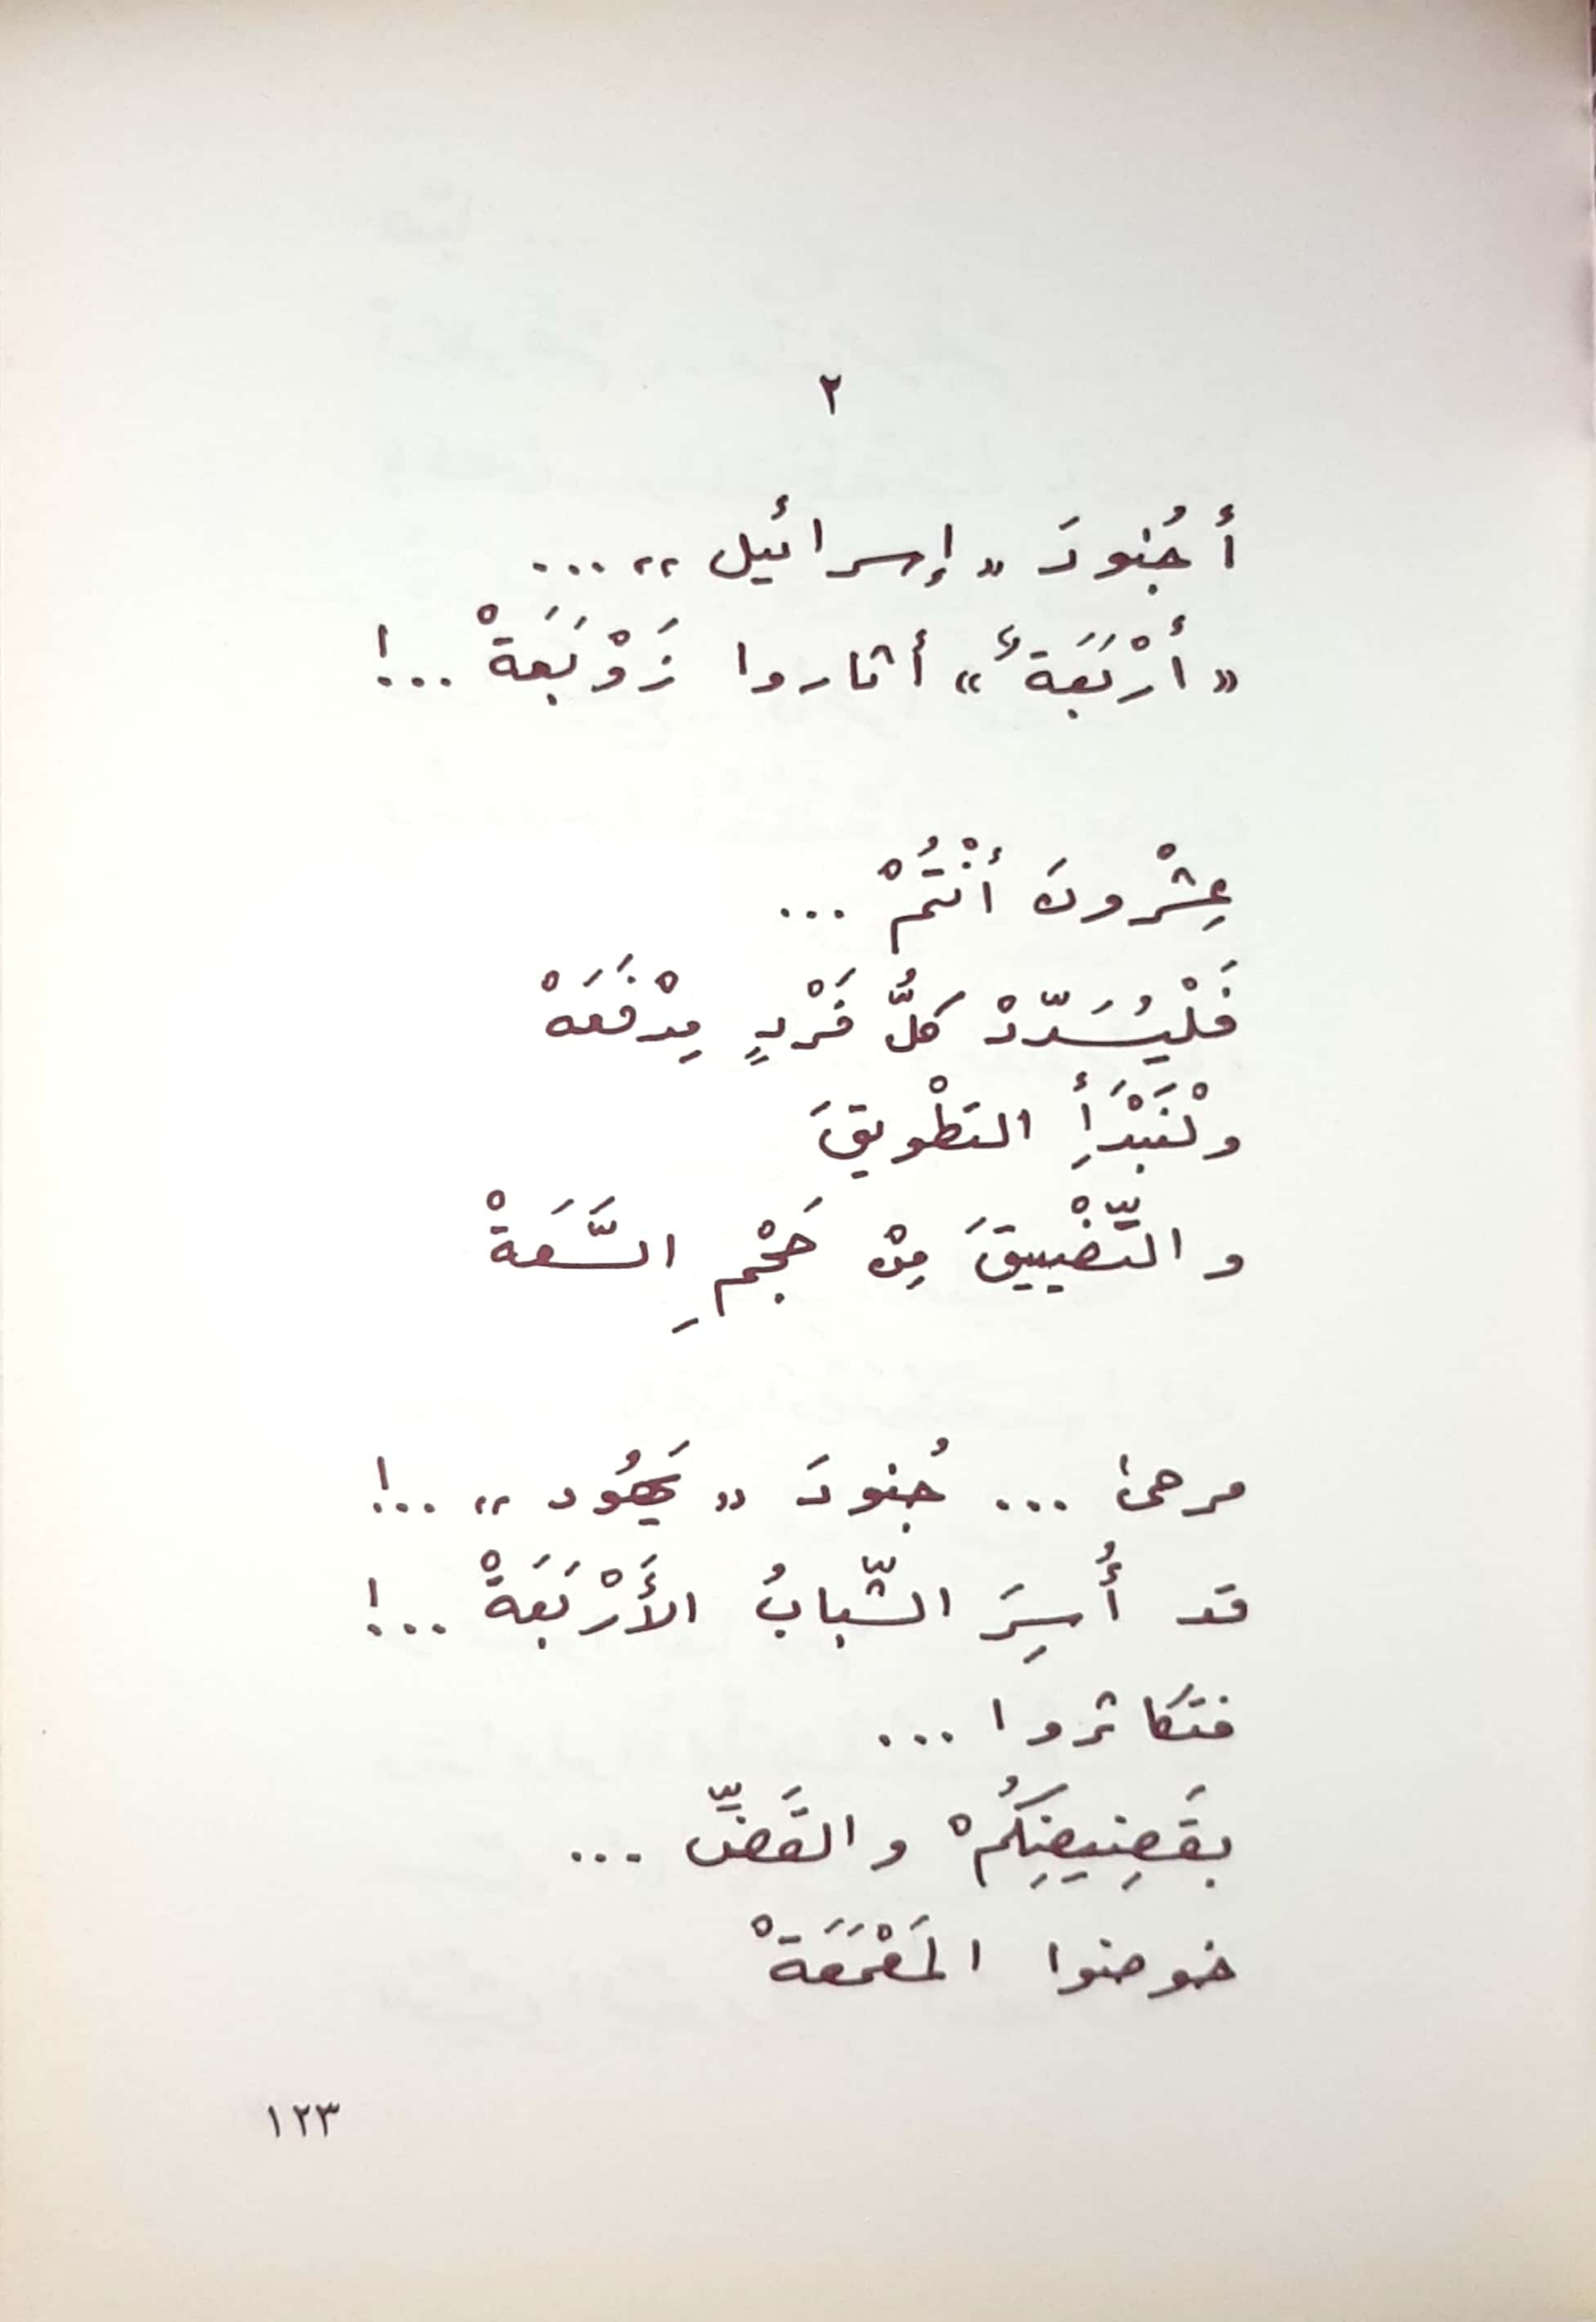 ٢
أ جُنودَ «إسرائيل» ...
«أرْبَعَةٌ» أثاروا زَوْبَعَةْ ...!
عِشْرونَ أنْتُمْ ...
فَلْيُسَدّدْ كلُّ فَرْدٍ مِدْفَعَهْ
ولْنَبْدَأِ التَطْويقَ
والتّضْييقَ مِنْ حَجْمِ السَّعَةْ
مرحىٰ ... جُنودَ «يَهُود» ...!
قد أُسِرَ الشّبابُ الأَرْبَعَةْ ...!
فتَكاثروا ...
بقَضِيضِكُمْ والقَضِّ ...
خوضوا المَعْمَعَةْ
١٢٣